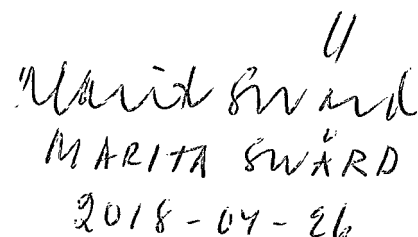 Marita Swärd
MARITA SWÄRD
2018-04-26